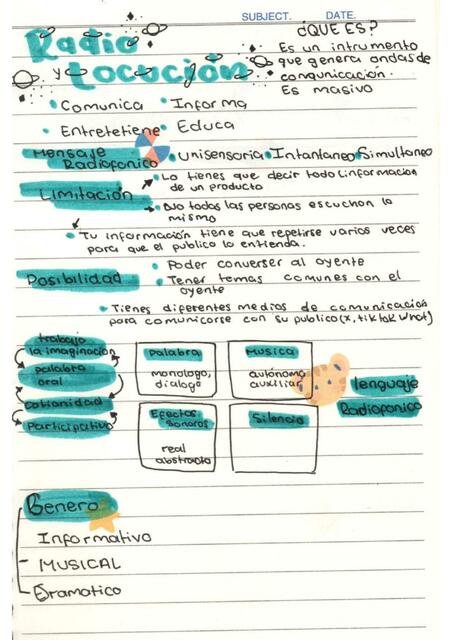 SUBJECT. DATE.
Radio
y Locución
¿QUE ES?
Es un intrumento
que genera ondas de
comunicación.
Es masivo
• Comunica • Informa
• Entretetiene • Educa
Mensaje
Radiofonico • Unisensoria • Intantaneo • Simultoneo
Limitación
• Lo tienes que decir todo (informacion
de un producto
• No todas las personas escuchon lo
mismo
• Tu información tiene que repetirse varios veces
para que el publico lo entienda.
Posibilidad
• Poder converser al oyente
• Tener temas comunes con el
oyente
• Tienes diferentes medios de comunicación
para comunicorse con su publico (x, tiktok what)
trabajo
la imaginación
palabra
oral
cotianidad
Participativo
Palabra
monologo,
dialogo
Musica
autónoma
auxiliar
Efectos
sonoros
real
abstracto
Silencio
lenguaje
Radiofonico
Genero
Informativo
MUSICAL
Dramatico